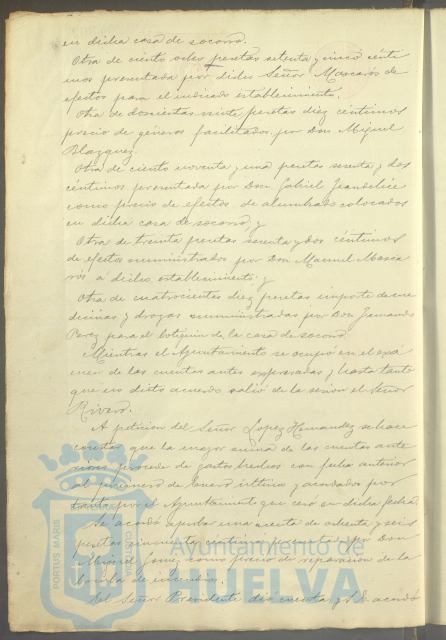 en dicha casa de socorro.
Otra de ciento ocho pesetas setenta y cinco cénti
mos presentada por dicho Señor Mascarós de
efectos para el indicado establecimiento.
Otra de doscientas siete pesetas diez céntimos
precio de géneros facilitados por Don Miguel
Blazquez.
Otra de ciento noventa y una pesetas sesenta y dos
céntimos presentada por Don Gabriel
como precio de efectos de alumbrado colocados
en dicha casa de socorro, y
Otra de treinta pesetas sesenta y dos céntimos
de efectos suministrados por Don Manuel Masca
rós a dicho establecimiento: y
Otra de cuatrocientas diez pesetas importe de me
dicinas y drogas suministradas por Don Fernando
Perez para el botiquin de la casa de socorro.
Mientras el Ayuntamiento se ocupó en el exá
men de las cuentas antes expresadas y hasta tanto
que en dicho acuerdo salió de la sesion el Señor
Rivero.
A peticion del Señor Lopez Hernandez se hace
constar que la mayor suma de las cuentas ante
riores procede de gastos hechos con fecha anterior
al primero de Enero último y acordados por
tanto por el Ayuntamiento que cesó en dicha fecha.
Se acordó aprobar una cuenta de ochenta y seis
pesetas cincuenta céntimos presentada por Don
Miguel Gomez como precio de reparacion de la
bomba de incendios.
El Señor Presidente dió cuenta y se acordó
PORTUS MARIS
Ayuntamiento de
HUELVA